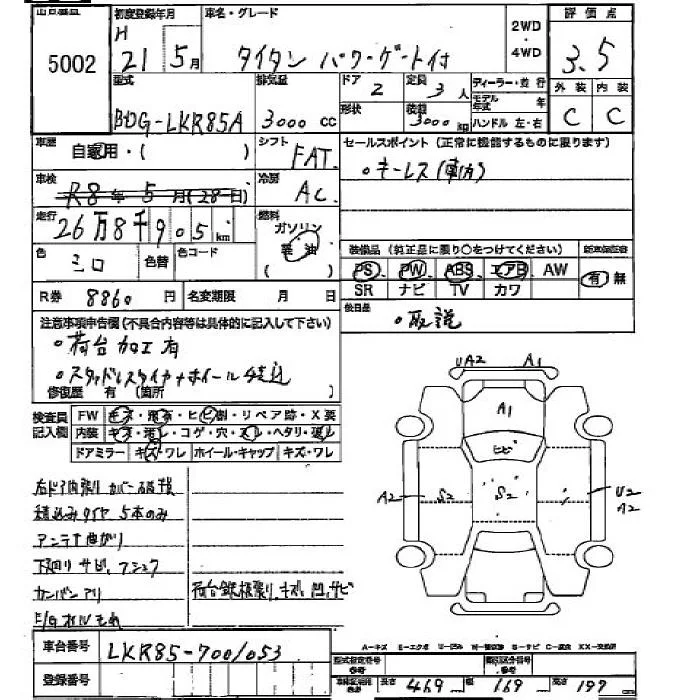 5002
初度登録年月
車名・グレード
H 21 5月
タイタン パワーゲート付
2WD
・
4WD
評価点
3.5
型式
BDG-LKR85A
排気量
3000 cc
ドア
2
定員
3人
形状
積載
3000 kg
ディーラー・並行
モデル年式 年
ハンドル 左・右
外装 内装
C C
車歴
自家用・( )
シフト
FAT
セールスポイント (正常に機能するものに限ります)
車検
R8年5月(28日)
冷房
AC
走行
26万8千905km
燃料
ガソリン
軽油
( )
色
シロ
色替
色コード
装備品 (純正品に限り○をつけてください)
PS PW ABS エアB AW
SR ナビ TV カワ
有 無
R券 8860円
名変期限 月 日
後日品
・取説
注意事項申告欄 (不具合内容等は具体的に記入して下さい)
・荷台加工有
・スタッドレスタイヤ+ホイール積込
修復歴 有 (箇所 )
検査員記入欄
FW キズ・飛石・ヒビ割・リペア跡・X要
内装 キズ・汚レ・コゲ・穴・スレ・ヘタリ・破レ
ドアミラー キズ・ワレ ホイール・キャップ キズ・ワレ
積込みタイヤ 5本のみ
アンテナ曲がり
下廻り サビ、フショク
カンバンアリ
E/Gオイルもれ
荷台鉄板張り、キズ、凹、サビ
UA2
A1
A1
ヒビ
A2
S2
S2
U2
A2
車台番号 LKR85-7001053
登録番号
型式指定番号
類別区分番号
長さ 469 cm 幅 169 cm 高さ 197 cm